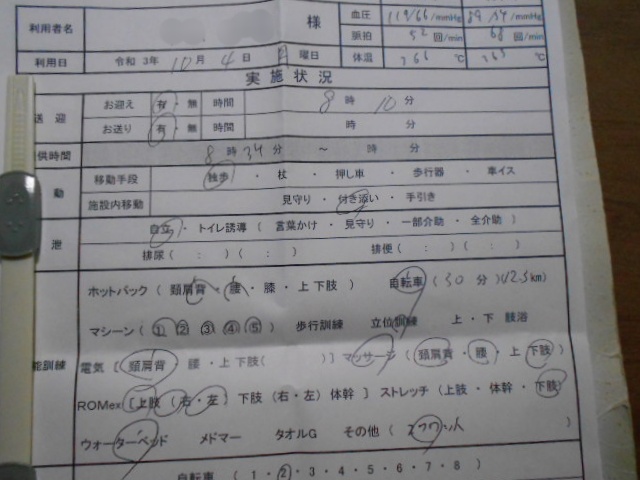 利用者名 様 血圧 119/66 mmHg mmHg
脈拍 52 回/min 68 回/min
利用日 令和 3年 10月 4日 月 曜日 体温 ℃ ℃
実施状況
送迎 お迎え 有・無 時間 8時 10分
お送り 有・無 時間 時 分
供時間 8時34分 ～ 時 分
動 移動手段 独歩・杖・押し車・歩行器・車イス
施設内移動 見守り・付き添い・手引き
泄 自立・トイレ誘導(言葉かけ・見守り・一部介助・全介助)
排尿( : )( : ) 排便( : )( : )
ホットパック(頸肩背・腰・膝・上下肢) 自転車(30分)(12.5km)
マシーン(①②③④⑤) 歩行訓練 立位訓練 上・下 肢浴
能訓練 電気[頸肩背・腰・上下肢( )] マッサージ(頸肩背・腰・上 下肢)
ROMex[上肢(右・左) 下肢(右・左) 体幹] ストレッチ(上肢・体幹・下肢)
ウォーターベッド メドマー タオルG その他( )
自転車 (1・2・3・4・5・6・7・8)